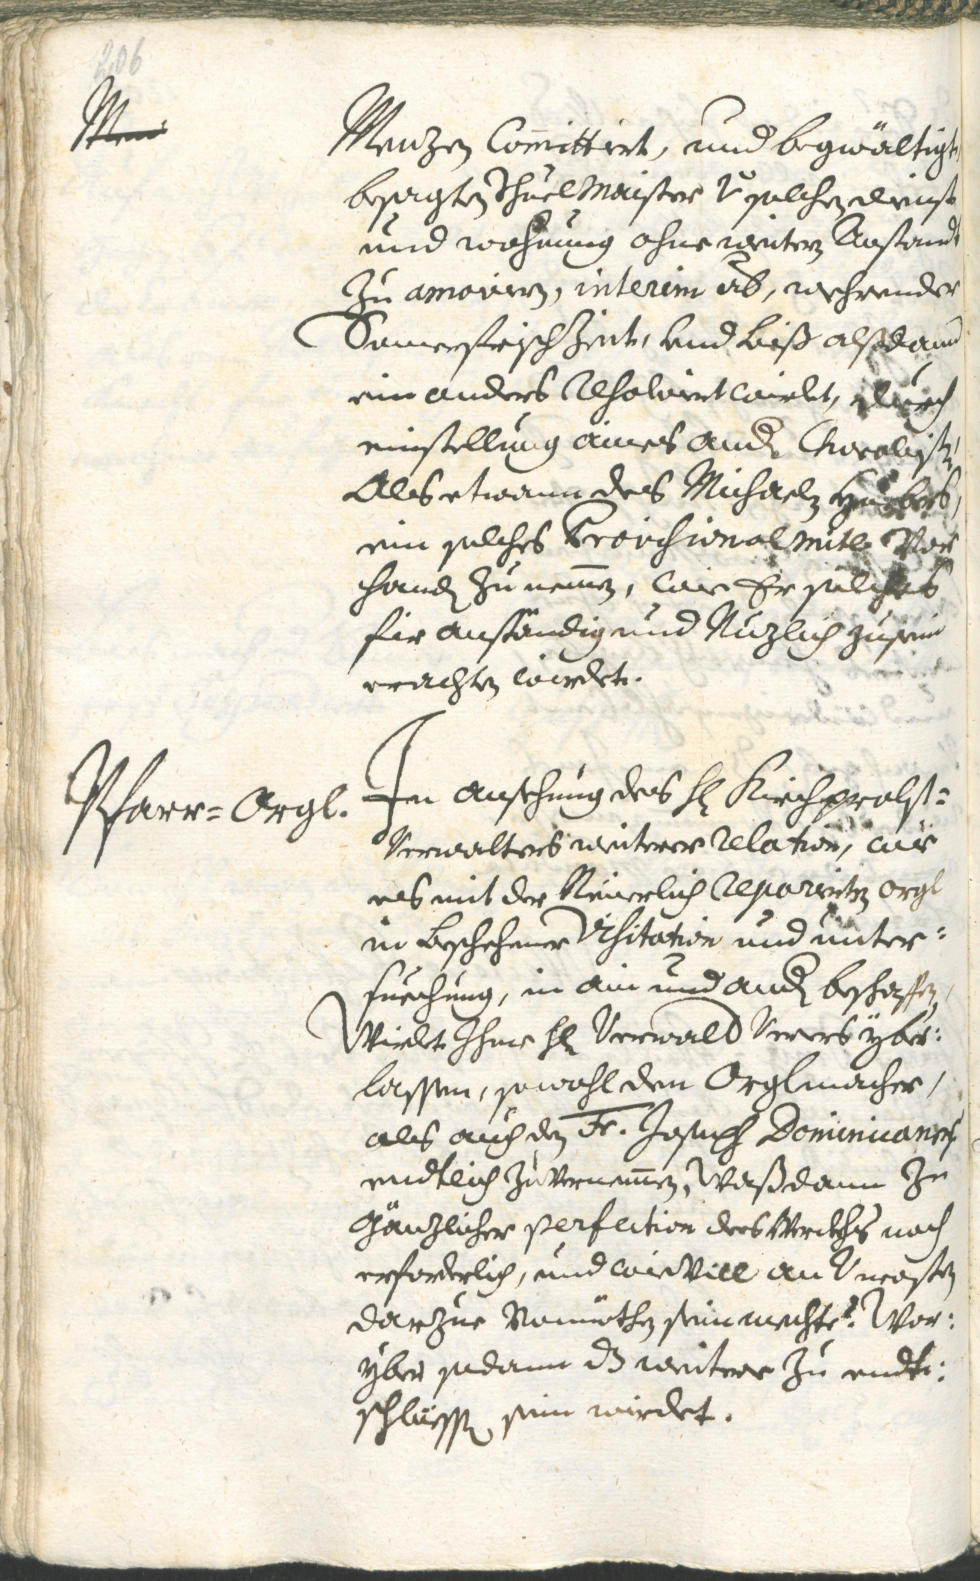 206
Men
Menzen Com̄ittirt, und begwältigt,
besagten Schuelmaister von solchem dienst
und wohnung ohne weitern Anstandt
zu amoviern, interim ab, wehrender
Somerfrisch Zeit, und biß alßdann
ein anders Resolvirt wirdet, durch
einstellung aines andern Choralisten
Als etwann des Michaeln Huebers,
ein solches Provisional mitl Vor
handen zu nem̄en, wie Er solches
für anständig und Nuzlich zu sein
erachten wirdet.
Pfarr= Orgl.
In ansehung des H: Kirchprobst=
Verwalters weiterer relation, wie
es mit der Neuerlich Reparierten orgl
in beschehener Visitation und unter=
suechung, in ain und andern beschaffen,
Wirdet Ihme H: Verwaldtern yber=
lassen, sowohl den Orglmacher,
als auch den Fr. Joseph Dominicaner
endtlich zuvernem̄en, Waß dann zu
gänzlicher perfection des Werckhs noch
erforderlich, und wie Vill an Uncosten
darzue Vonnöthen sein mechte. Wor=
yber sodann dz weitere zu endt=
schliessen sein wirdet.